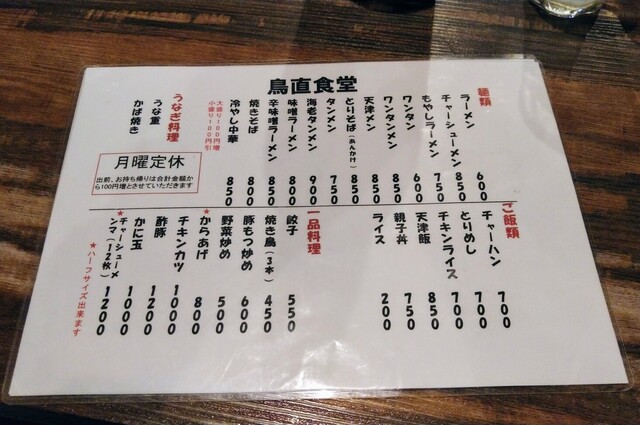 鳥直食堂
麺類
ラーメン 600
チャーシューメン 850
もやしラーメン 750
ワンタン 600
ワンタンメン 850
天津メン 850
とりそば(あんかけ) 850
タンメン 750
海老タンメン 900
味噌ラーメン 800
辛味噌ラーメン 850
焼きそば 800
冷やし中華 850
大盛り100円増
小盛り100円引
うなぎ料理
うな重
かば焼き
月曜定休
出前、お持ち帰りは合計金額か
ら100円増とさせていただきます
ご飯類
チャーハン 700
とりめし 700
チキンライス 700
天津飯 850
親子丼 750
ライス 200
一品料理
餃子 550
焼き鳥(3本) 450
豚もつ炒め 600
野菜炒め 500
★からあげ 800
チキンカツ 1000
酢豚 1200
かに玉 1000
★チャーシューメ
ンマ(12枚) 1200
★ハーフサイズ出来ます